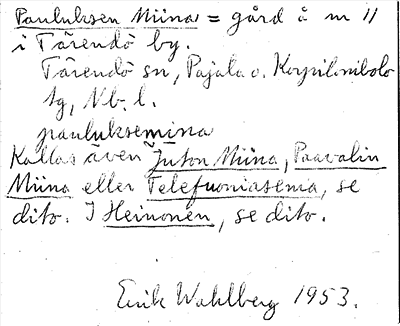 Pauluksen Miina = gård å nr 11
i Tärendö by.
Tärendö sn, Pajala o. Korpilombolo
tg, Nb. l.
pauluksemina
Kallas även Juton Miina, Paavalin
Miina eller Telefuoniasema, se
dito. I Heinonen, se dito.
Erik Wahlberg 1953.